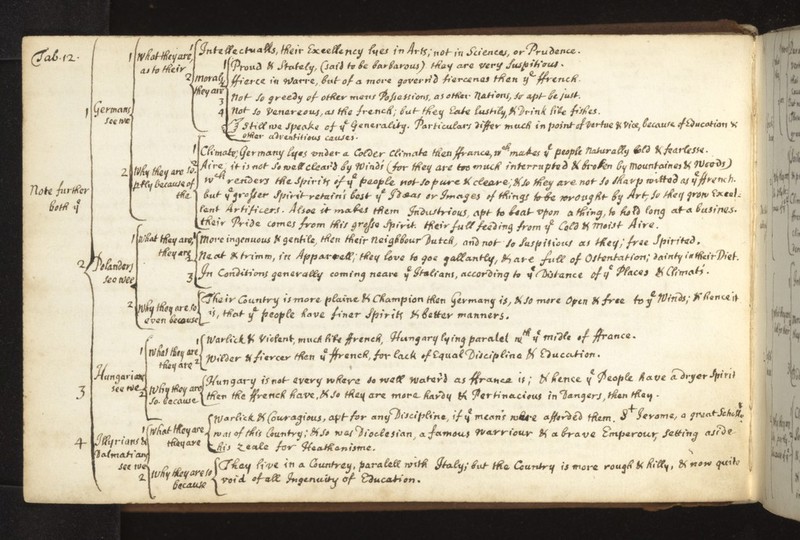 Tab. 12.
Note further both yᵉ
1 Germans see wᵉ
1 What they are, as to their
1 Intellectualls, their Excellency lyes in Arts; not in Sciences, or Prudence.
2 Morals they are
1 Proud & Stately, (said to be barbarous) they are very Suspitious.
2 ffierce in warre, but of a more govern'd fiercenes then yᵉ ffrench.
3 Not so greedy of other mens Possessions, as other Nations, so apt be just.
4 Not so venereous, as the french; but they Eate lustily, & Drink like fishes.
I Still we speake of yᵉ Generality. Particulars differ much in point of vertue & vice, because of Education &
other adventitious causes.
2 Why they are so, ptly because of the
Climate; Germany lyes under a Colder Climate then ffrance, wᶜʰ makes yᵉ people naturally bold & fearlesse.
Aire, it is not so well clear'd by Winds (for they are too much interrupted & broken by mountaines & Woods)
wᶜʰ renders the Spirits of yᵉ people not so pure & cleare; & so they are not so sharp witted as yᵉ ffrench.
but yᵉ grosser Spirit retain's best yᵉ Ideas or Images of things to be wrought by Art, so they grow Excel-
lent Artificers. Alsoe it makes them Industrious, apt to beat upon a thing, to hold long at a busines.
their Pride comes from this grosse Spirit. their full feeding from yᵉ Cold & Moist Aire.
2 Polanders see wee
1 What they are, they are
1 More ingenuous & gentile, then their Neighbour Dutch, and not so Suspitious as they; free Spirited.
2 Neat & trimm, in Apparrell; they love to goe gallantly, & are full of Ostentation; dainty in their Diet.
3 In Conditions generally coming neare yᵉ Italians, according to yᵉ Distance of yᵉ Places & Climats.
2 Why they are so even because
Their Country is more plaine & Champion then Germany is, & so more Open & free to yᵉ Winds; & hence it
is, that yᵉ people have finer Spirits & better manners.
3 Hungarians see we
1 What they are they are
1 Warlick & Violent, much like ffrench, Hungary lying paralel wᵗʰ yᵉ midle of ffrance.
2 Wilder & fiercer then yᵉ ffrench, for lack of Equal Discipline & Education.
2 Why they are so. because
Hungary is not every where so well water'd as ffrance is; & hence yᵉ People have a dryer Spirit
then the ffrench have, & so they are more hardy & Pertinacious in Dangers, then they.
4 Illyrians & Dalmatians see we
1 What they are they are
Warlick & Couragious, apt for any Discipline, if yᵉ means were afforded them. Sᵗ Jerome, a great Scholler
was of this Country; & so was Dioclesian, a famous warriour & a brave Emperour, setting aside
his zeale for Heathenisme.
2 Why they are so because
They live in a Countrey, paralell with Italy; but the Country is more rough & hilly, & now quite
void of all Ingenuity of Education.